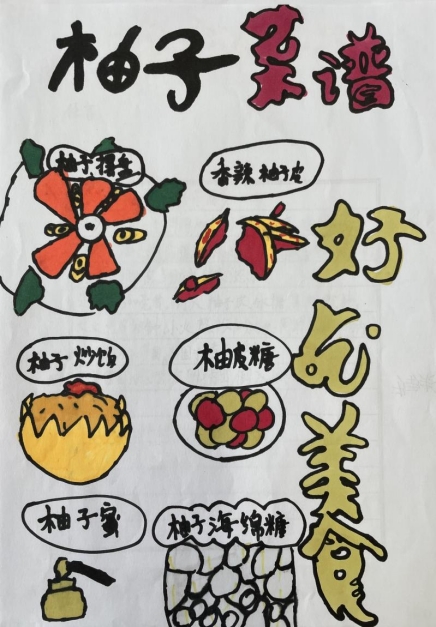 柚子菜谱
柚子
香辣柚子皮
柚子炒饭
柚皮糖
柚子蜜
柚子海锦糖
好吃美食